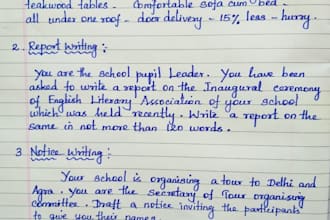 teakwood tables - Comfortable sofa cum bed -
all under one roof - door delivery - 15% less - hurry.
2. Report Writing :
You are the school pupil Leader. You have been
asked to write a report on the Inaugural ceremony
of English Literary Association of your school
which was held recently. Write a report on the
same in not more than 120 words.
3 Notice Writing :
Your school is organising a tour to Delhi and
Agra. You are the Secretary of Tour organising
committee. Draft a notice inviting the participants
to give you their names.